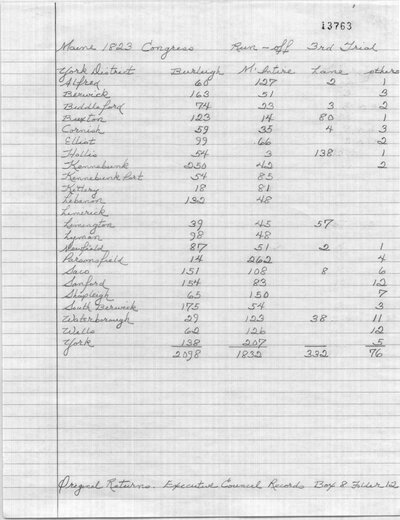 13763
Maine 1823 Congress Run-off 3rd Trial
York District Burleigh McIntire Lane others
Alfred 60 127 2 1
Berwick 163 51 3
Biddeford 74 23 3 2
Buxton 123 14 80 1
Cornish 59 35 4 3
Elliot 99 66 2
Hollis 54 3 138 1
Kennebunk 250 42 2
Kennebunk Port 54 85
Kittery 18 81
Lebanon 132 48
Limerick
Limington 39 45 57
Lyman 98 48
Newfield 87 51 2 1
Parsonsfield 14 262 4
Saco 151 108 8 6
Sanford 154 83 12
Shapleigh 65 150 7
South Berwick 175 54 3
Waterborough 29 123 38 11
Wells 62 126 12
York 138 207 5
2098 1832 332 76
Original Returns. Executive Council Records Box 8 Folder 12